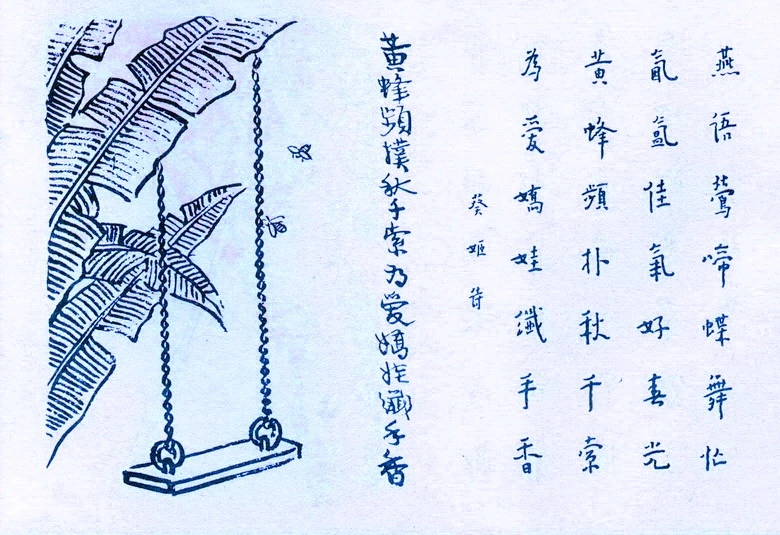 燕语莺啼蝶舞忙
氤氲佳氣好春光
黄蜂頻扑秋千索
為愛嬌娃纖手香
葵姬诗
黄蜂頻撲秋千索為愛嬌娃纖手香